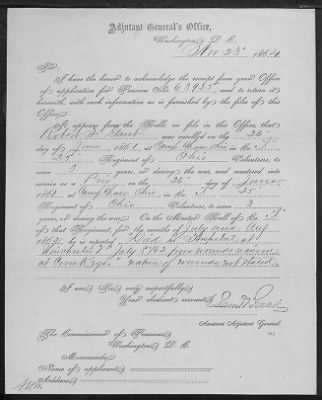 Adjutant General's Office,
Washington, D. C.
Nov 23d 1864
Sir:
I have the honor to acknowledge the receipt from your Office
of application for Pension No. 63935 and to return it
herewith, with such information as is furnished by the files of this
Office.
It appears from the Rolls on file in this Office, that
Robert was enrolled on the 26th
day of June, 1861, at Camp Chase, Ohio in Co.
25th Regiment of Ohio Volunteers, to
serve 3 years, or during the war, and mustered into
service as a Priv on the 26th day of June
1861, at Camp Chase Ohio in Co. 25th
Regiment of Ohio Volunteers, to serve 3
years, or during the war. On the Muster Roll of Co.
of that Regiment, for the months of July and Aug
1862, he is reported "Died in Hospital at
Winchester Va July 1862 from wounds received
at Cross Keys" nature of wounds not stated.
I am, Sir, very respectfully,
Your obedient servant,
Assistant Adjutant General.
The Commissioner of Pensions,
Washington, D. C.
Memoranda:
Name of applicant
Address